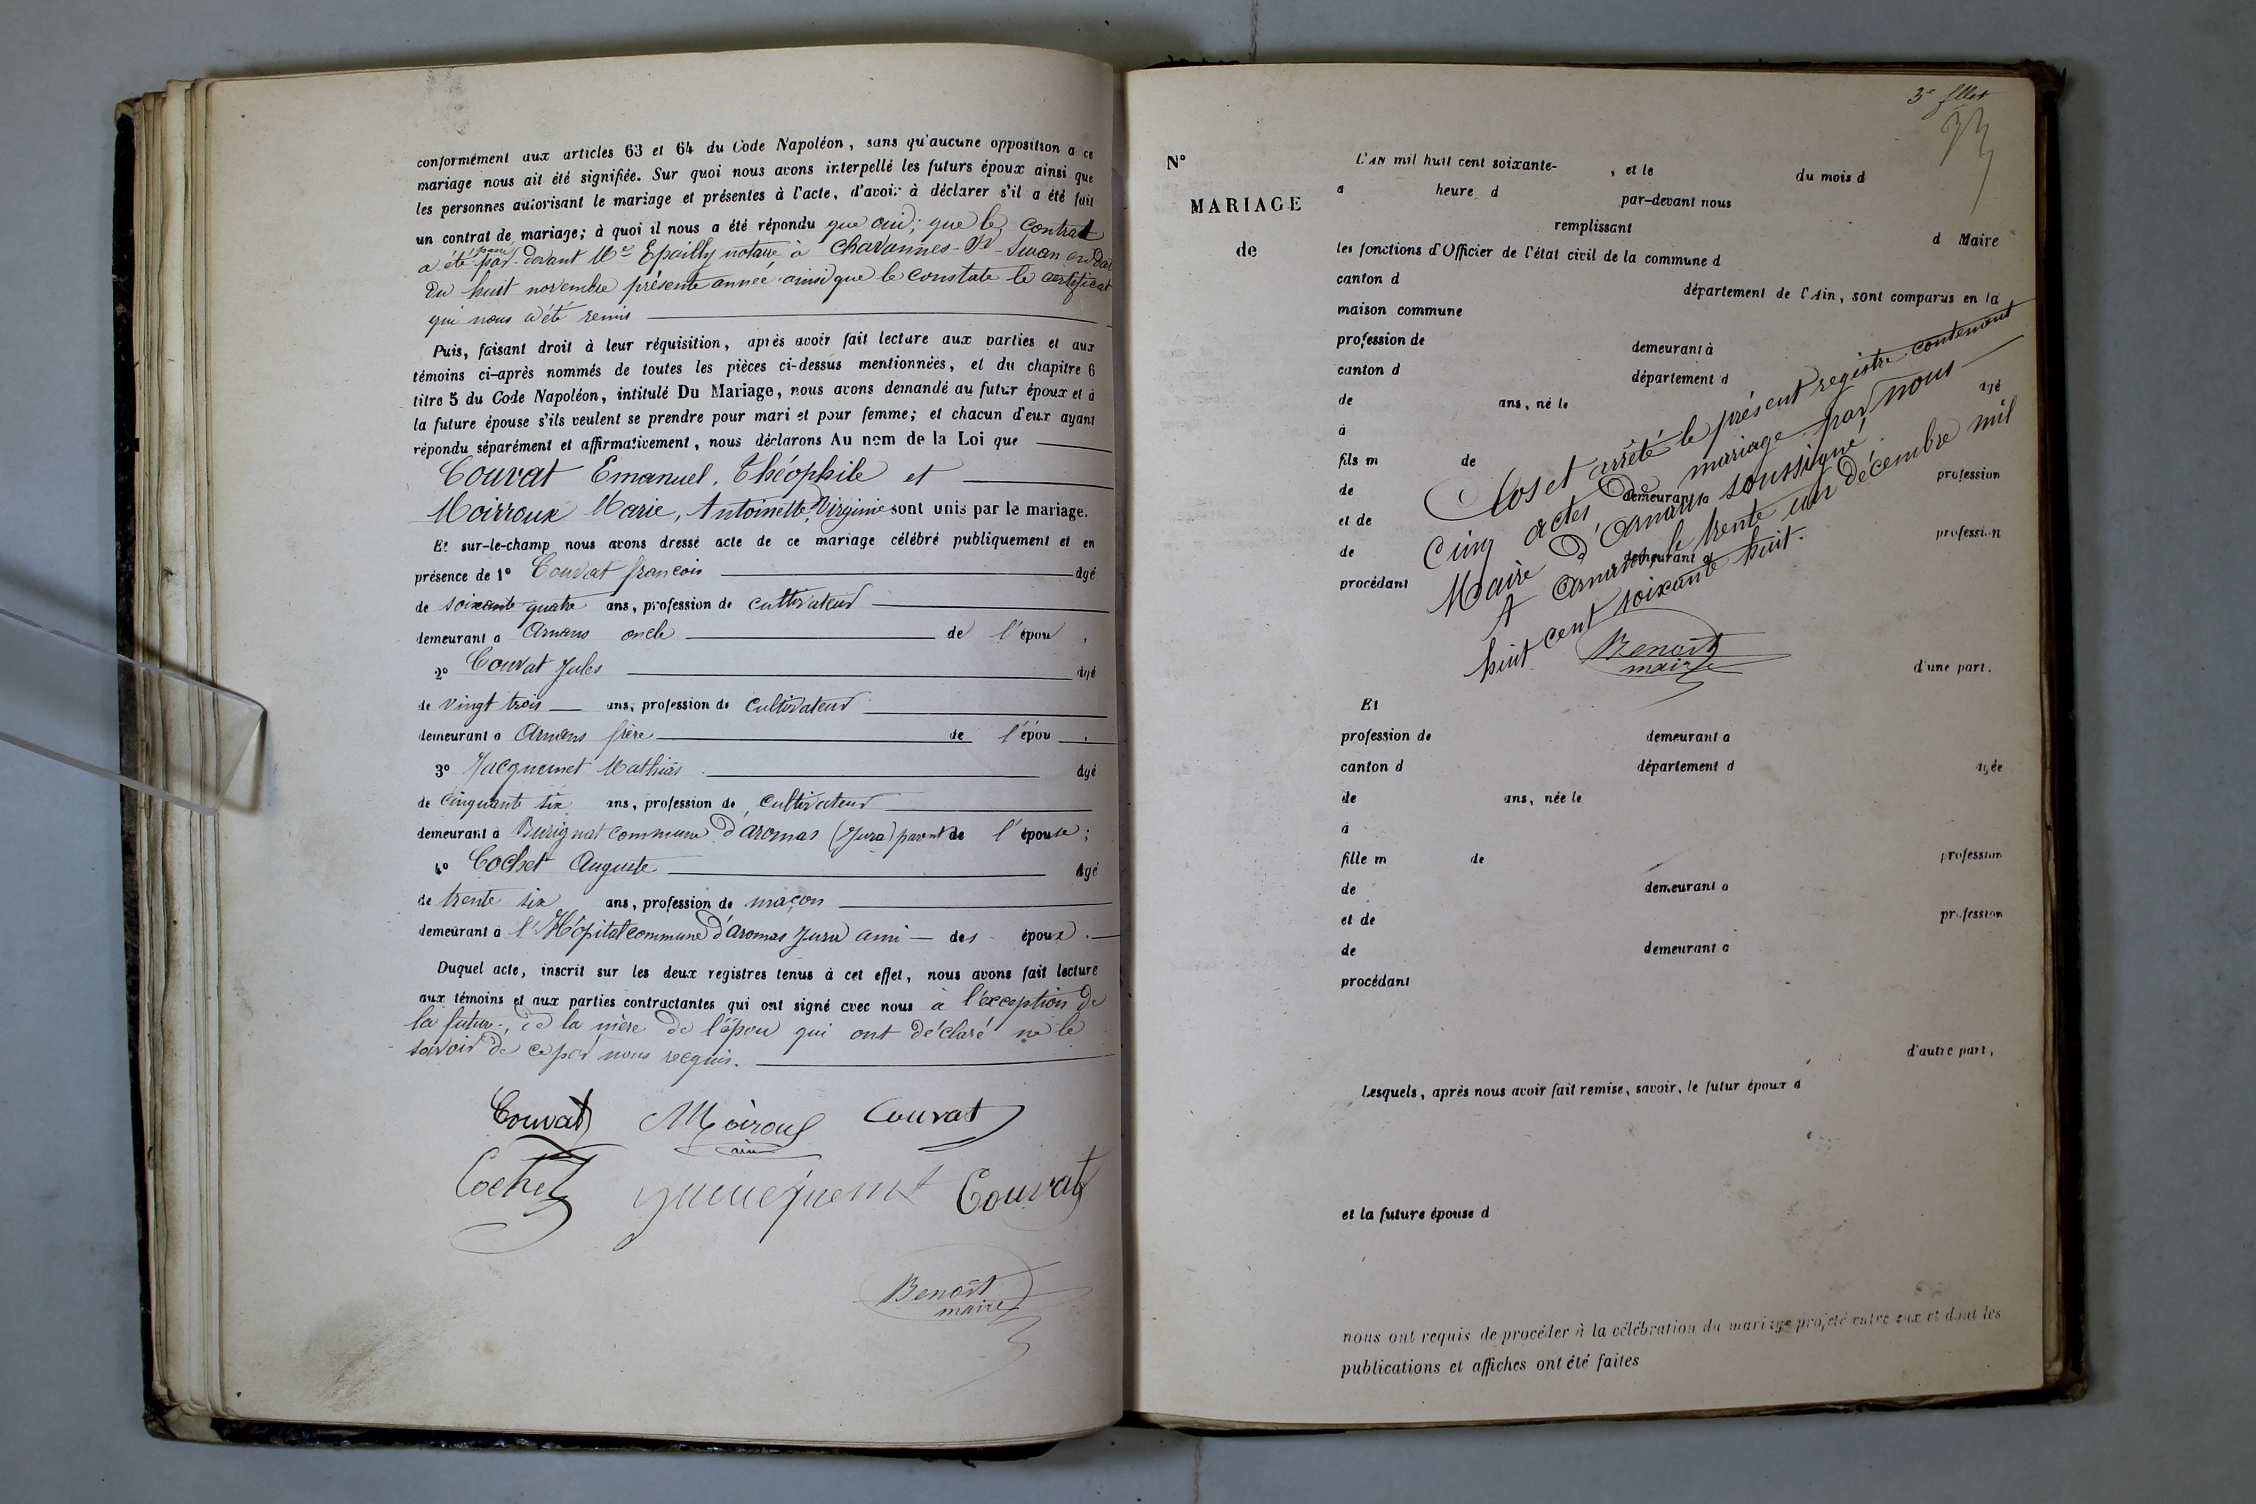 conformément aux articles 63 et 64 du Code Napoléon, sans qu'aucune opposition a ce
mariage nous ait été signifiée. Sur quoi nous avons interpellé les futurs époux ainsi que
les personnes autorisant le mariage et présentes à l'acte, d'avoir à déclarer s'il a été fait
un contrat de mariage; à quoi il nous a été répondu que oui; que le contrat
a été passé par-devant Me Epailly notaire à Chavannes-sr-Suran en date
du huit novembre présente année ainsi que le constate le certificat
qui nous a été remis
Puis, faisant droit à leur réquisition, après avoir fait lecture aux parties et aux
témoins ci-après nommés de toutes les pièces ci-dessus mentionnées, et du chapitre 6
titre 5 du Code Napoléon, intitulé Du Mariage, nous avons demandé au futur époux et à
la future épouse s'ils veulent se prendre pour mari et pour femme; et chacun d'eux ayant
répondu séparément et affirmativement, nous déclarons Au nom de la Loi que
Couvat Emanuel, Théophile et
Moirroux Marie, Antoinette, Virginie sont unis par le mariage.
Et sur-le-champ nous avons dressé acte de ce mariage célébré publiquement et en
présence de 1° Couvat françois âgé
de soixante quatre ans, profession de cultivateur
demeurant a Arnans oncle de l'épou .
2° Couvat Jules âgé
de vingt trois ans, profession de cultivateur
demeurant a Arnans frère de l'épou .
3° Jacquemet Mathias âgé
de cinquante six ans, profession de cultivateur
demeurant à Burignat commune d'aromas (Jura) parent de l'épouse;
4° Cochet Auguste âgé
de trente six ans, profession de maçon
demeurant à l'Hôpital commune d'aromas Jura ami des époux.
Duquel acte, inscrit sur les deux registres tenus à cet effet, nous avons fait lecture
aux témoins et aux parties contractantes qui ont signé avec nous à l'exception de
la future, de la mère de l'épou qui ont déclaré ne le
savoir de ce par nous requis.
Couvat Moiroux Couvat
Cochet Couvat
Benoit
maire
3e fllet
N°
MARIAGE
de
L'AN mil huit cent soixante- , et le du mois d
a heure d par-devant nous
remplissant d Maire
les fonctions d'Officier de l'état civil de la commune d
canton d département de l'Ain, sont comparus en la
maison commune
profession de demeurant à
canton d département d
de ans, né le âgé
à
fils m de
de demeurant a profession
et de
de demeurant a profession
procédant
Clos et arrêté le présent registre contenant
Cinq actes de mariage par nous
Maire d'Arnans soussigné,
A Arnans, le trente un décembre mil
huit cent soixante huit.
Benoit
maire
d'une part.
Et
profession de demeurant a
canton d département d agée
de ans, née le
à
fille m de profession
de demeurant a
et de profession
de demeurant a
procédant
d'autre part,
Lesquels, après nous avoir fait remise, savoir, le futur époux d
et la future épouse d
nous ont requis de procéder à la célébration du mariage projeté entre eux et dont les
publications et affiches ont été faites